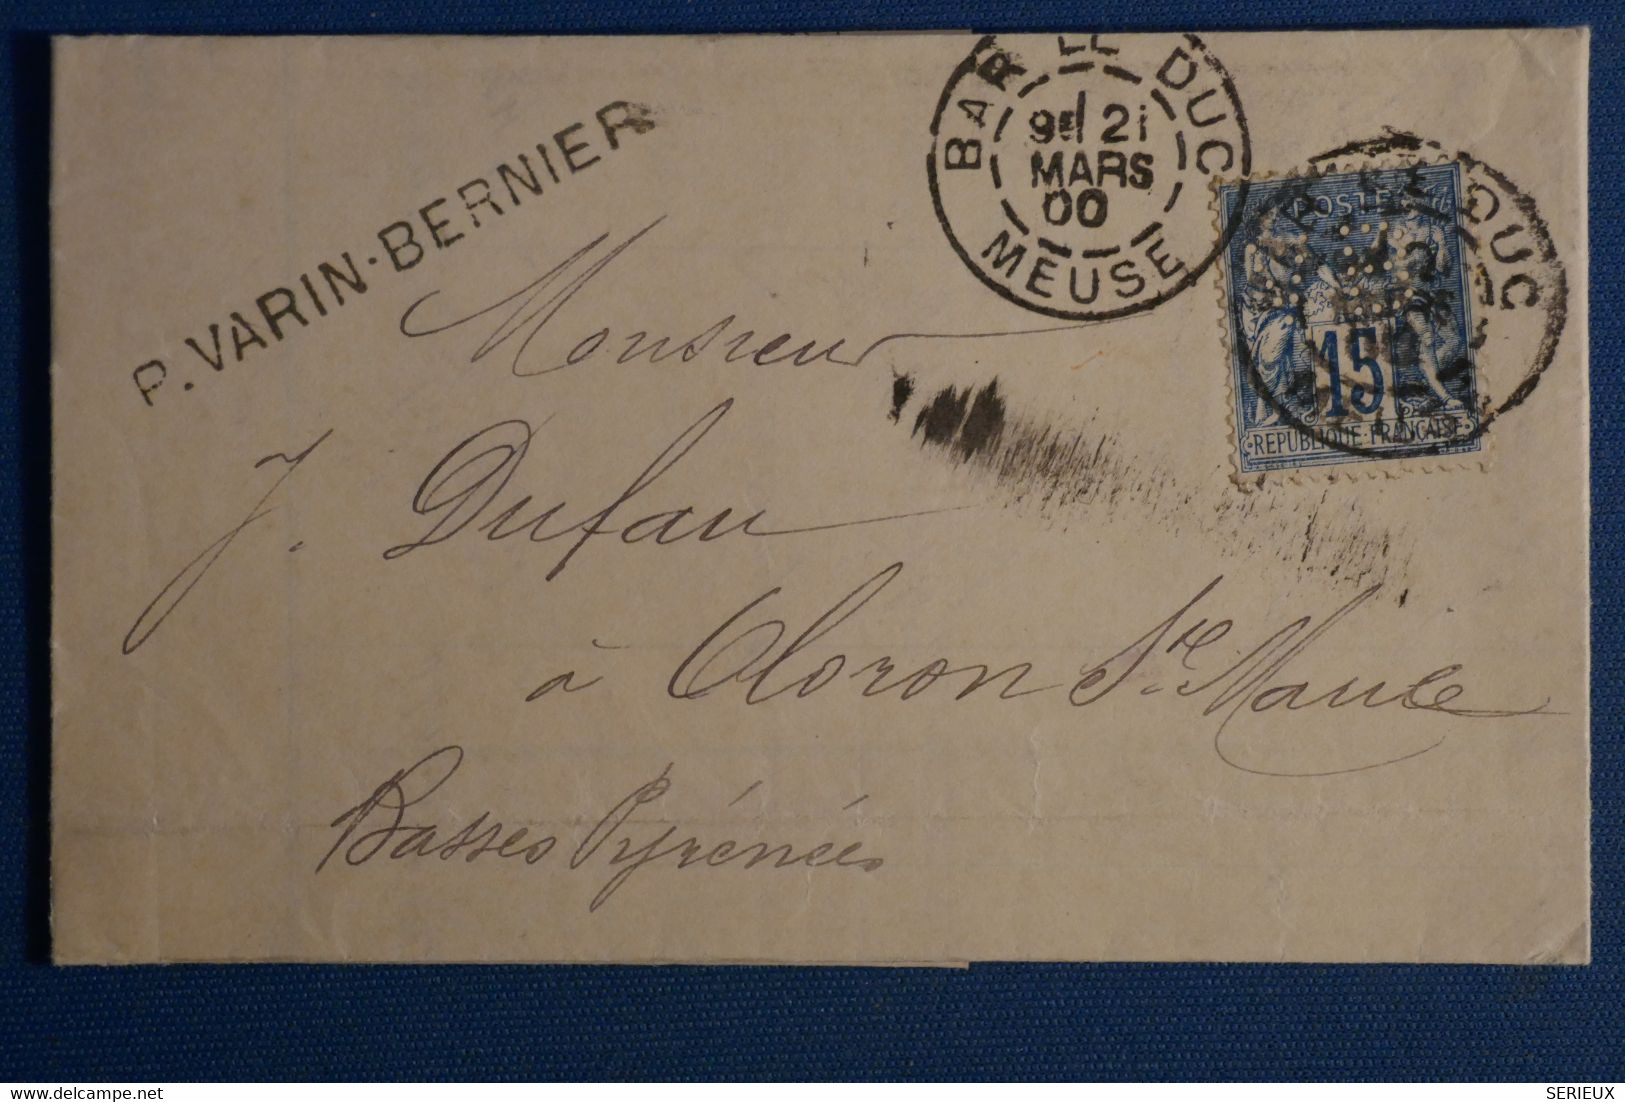 P. VARIN-BERNIER
BAR LE DUC
9E 21
MARS
00
MEUSE
DUC
POSTES
15
REPUBLIQUE FRANÇAISE
Monsieur
J. Dufau
à Oloron Ste Marie
Basses Pyrénées
delcampe.net
SERIEUX